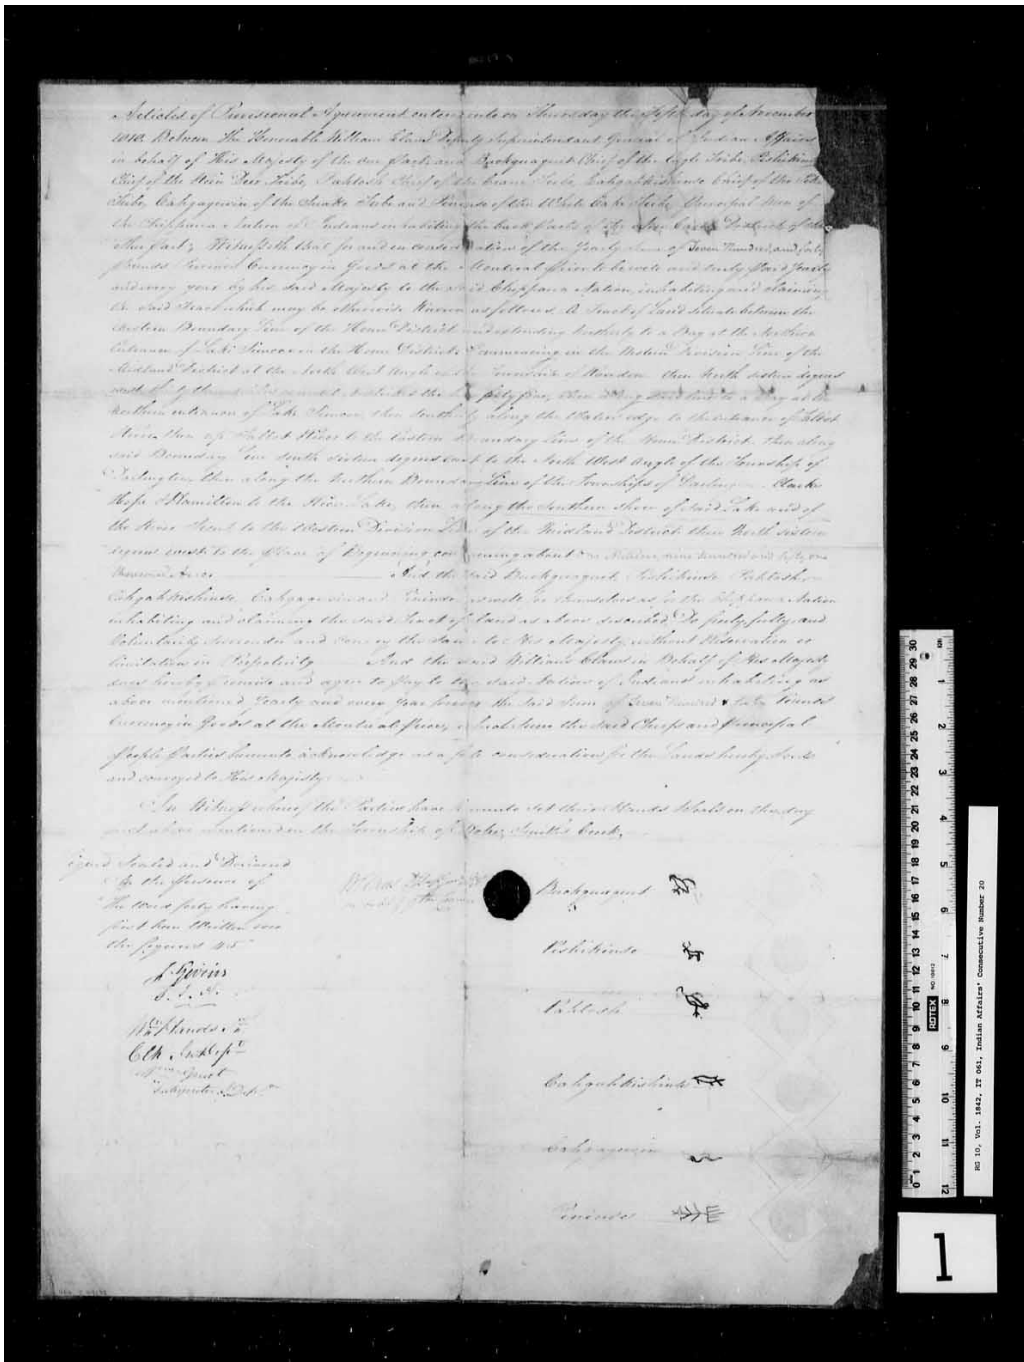 Articles of Provisional Agreement entered into on Thursday the fifth day of November
1818 Between the Honorable William Claus Deputy Superintendant General of Indian Affairs
in behalf of His Majesty of the one part and Buckquaquet Chief of the Eagle Tribe, Pishikinse
Chief of the Rein Deer Tribe, Pahtosh Chief of the Crane Tribe, Cahgahkishinse Chief of the
Tribe, Cahgagewin of the Snake Tribe and Pininse of the White Oak Tribe, Principal Men of
the Chippawa Nation of Indians inhabiting the back parts of the New Castle District of the
other part; Witnesseth that for and in consideration of the Yearly Sum of Seven Hundred and forty
pounds Province Currency in Goods at the Montreal price to be well and truly paid yearly
and every year by his said Majesty to the said Chippawa Nation, inhabiting and claiming
the said Tract which may be otherwise known as follows. A Tract of Land situate between the
Western Boundary Line of the Home District and extending Northerly to a Bay at the Northern
Entrance of Lake Simcoe in the Home District Commencing in the Western Division Line of the
Midland District at the North West Angle of the Township of Rawdon then North sixteen degrees
west thirty three miles or until it strikes the line forty five, then along said line to a Bay at the
Northern entrance of Lake Simcoe then Southerly along the Water's edge to the entrance of Talbot
River then up Talbot River to the Eastern Boundary Line of the Home District then along
said Boundary Line South sixteen degrees East to the North West Angle of the Township of
Darlington, then along the Northern Boundary Line of the Townships of Darlington, Clarke
Hope & Hamilton to the Rice Lake, then along the Southern Shore of said Lake and of
the River Trent to the Western Division Line of the Midland District then North sixteen
degrees west to the place of Beginning containing about One Million nine hundred and fifty one
thousand Acres And the said Buckquaquet, Pishikinse, Pahtosh
Cahgahkishinse Cahgagewin and Pininse as well for themselves as for the Chippawa Nation
inhabiting and claiming the said Tract of Land as above described Do freely, fully and
Voluntarily Surrender and convey the same to His Majesty without Reservation or
limitation in Perpetuity And the said William Claus in Behalf of His Majesty
does hereby promise and agree to pay to the said Nation of Indians inhabiting as
above mentioned Yearly and every Year forever the said Sum of Seven Hundred & forty Pounds
Currency in Goods at the Montreal price, which sum the said Chiefs and Principal
People Parties hereunto acknowledge as a full consideration for the Lands hereby Sold
and conveyed to His Majesty
In Witness whereof the Parties have hereunto set their Hands & Seals on the day
first above mentioned in the Township of Hope, Smith's Creek,
Signed Sealed and Delivered
In the Presence of
The Word forty having
first been Written over
the figures 45
J. Givins
S. I. A.
Wm Hands Sr
Clk Ind Dept
Wm Gruet
Interpreter Ind Dept
W Claus
in behalf of the Crown
Buckquaquet
Pishikinse
Pahtosh
Cahgahkishinse
Cahgagewin
Pininse
30 29 28 27 26 25 24 23 22 21 20 19 18 17 16 15 14 13 12 11 10 9 8 7 6 5 4 3 2 1 0
1 2 3 4 5 6 7 8 9 10 11 12
ROTEX
RG 10, Vol. 1842, IT 061, Indian Affairs' Consecutive Number 20
1